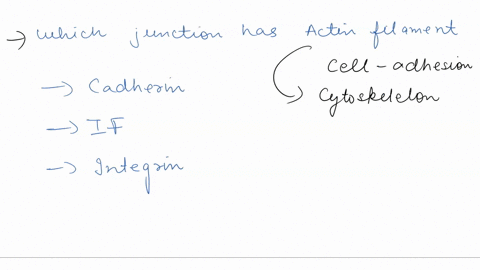 → which junction has Actin filament
Cell-adhesion
Cytoskeleton
→ Cadherin
→ IF
→ Integrin